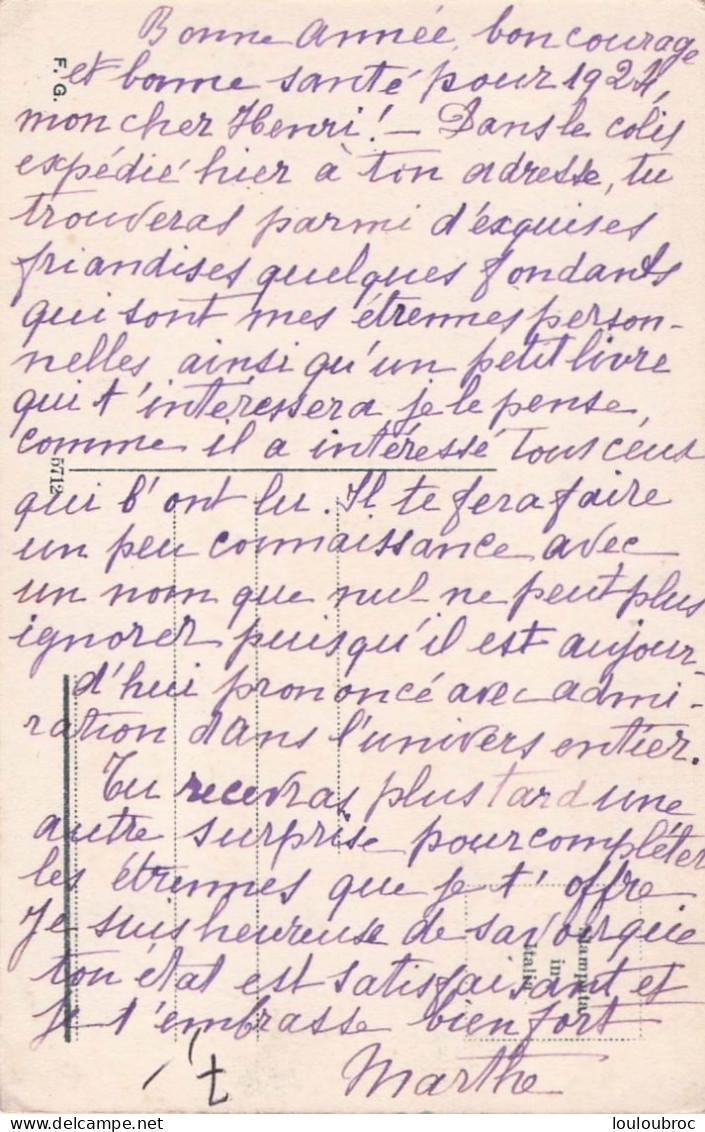 Bonne Année, bon courage
et bonne santé pour 1924,
mon cher Henri! — Dans le colis
expédié hier à ton adresse, tu
trouveras parmi d'exquises
friandises quelques fondants
qui sont mes étrennes person-
nelles, ainsi qu'un petit livre
qui t'intéressera je le pense,
comme il a intéressé tous ceux
qui l'ont lu. Il te fera faire
un peu connaissance avec
un nom que nul ne peut plus
ignorer puisqu'il est aujour-
d'hui prononcé avec admi-
ration dans l'univers entier.
Tu recevras plus tard une
autre surprise pour compléter
les étrennes que je t'offre
Je suis heureuse de savoir que
ton état est satisfaisant et
je t'embrasse bien fort
Marthe
F. G.
5712
in
Italie
louloubroc